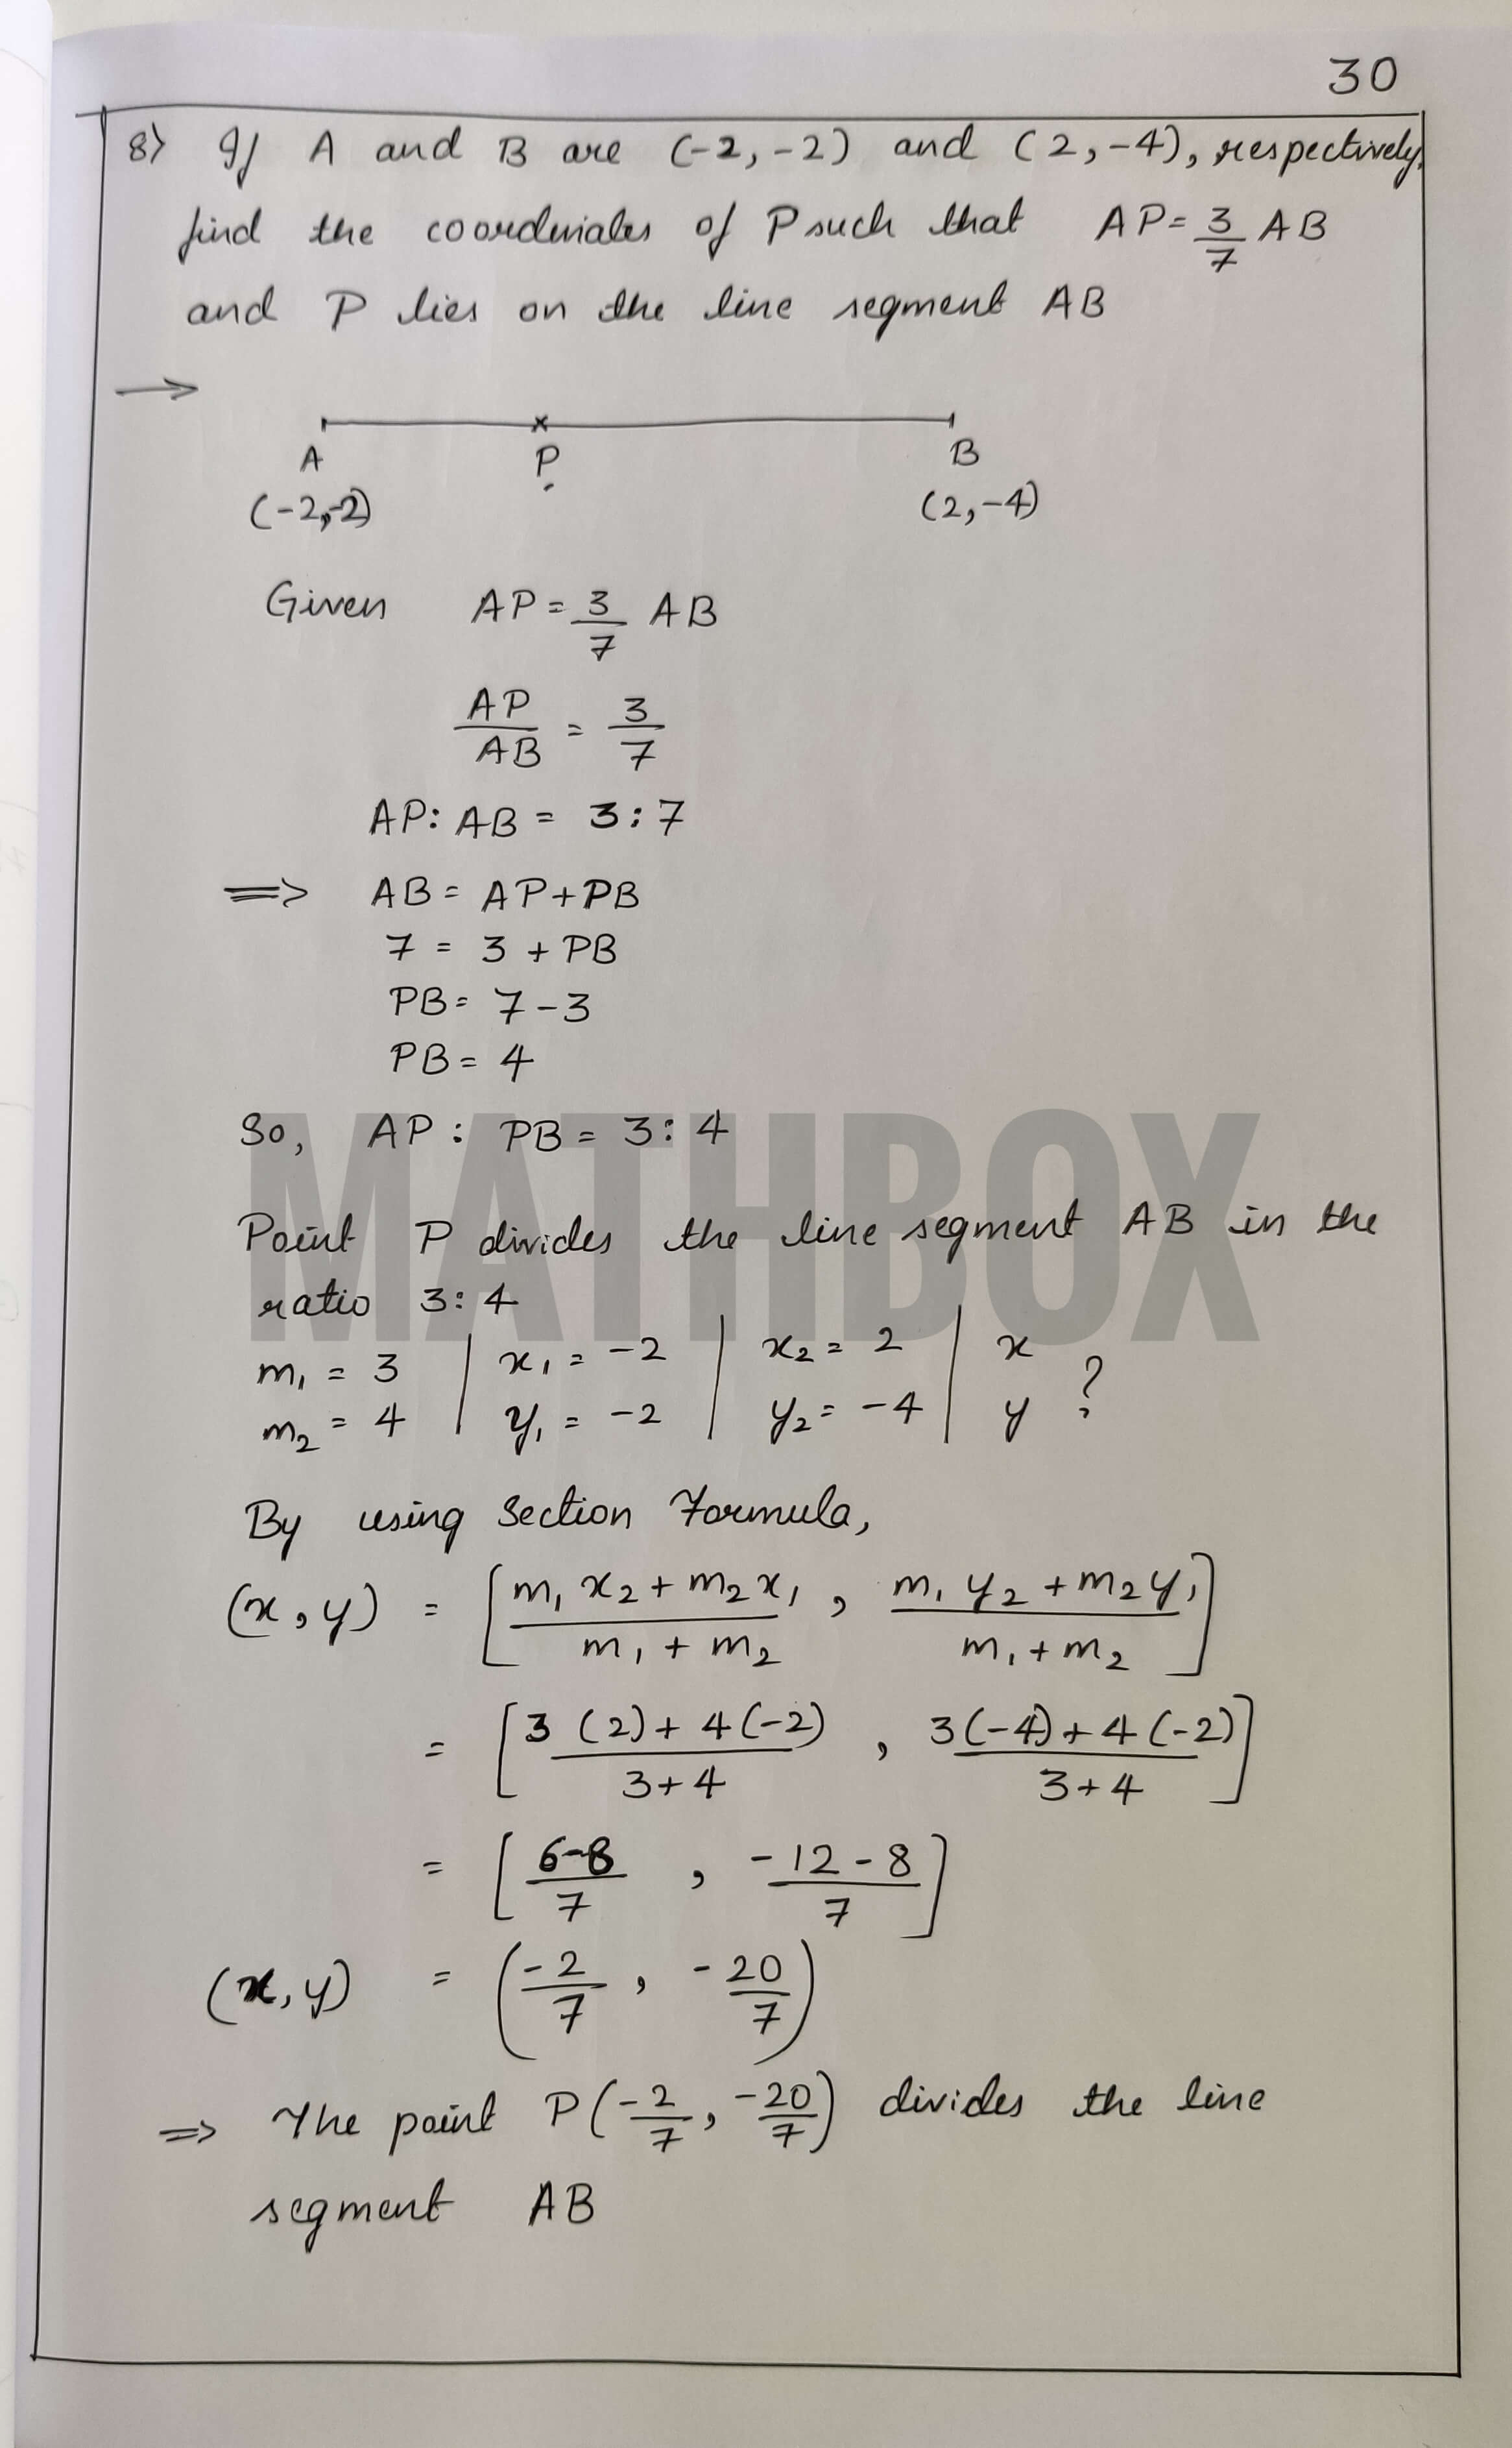 30
8) If A and B are (-2,-2) and (2,-4), respectively,
find the coordinates of P such that AP = 3/7 AB
and P lies on the line segment AB
→
A P B
(-2,-2) (2,-4)
Given AP = 3/7 AB
AP/AB = 3/7
AP: AB = 3:7
=> AB = AP+PB
7 = 3 + PB
PB = 7-3
PB = 4
So, AP : PB = 3:4
MATHBOX
Point P divides the line segment AB in the
ratio 3:4
m₁ = 3 | x₁ = -2 | x₂ = 2 | x
m₂ = 4 | y₁ = -2 | y₂ = -4 | y ?
By using Section Formula,
(x, y) = [ (m₁x₂ + m₂x₁)/(m₁ + m₂) , (m₁y₂ + m₂y₁)/(m₁ + m₂) ]
= [ (3(2) + 4(-2))/(3+4) , (3(-4) + 4(-2))/(3+4) ]
= [ (6-8)/7 , (-12-8)/7 ]
(x, y) = ( -2/7 , -20/7 )
=> The point P(-2/7, -20/7) divides the line
segment AB